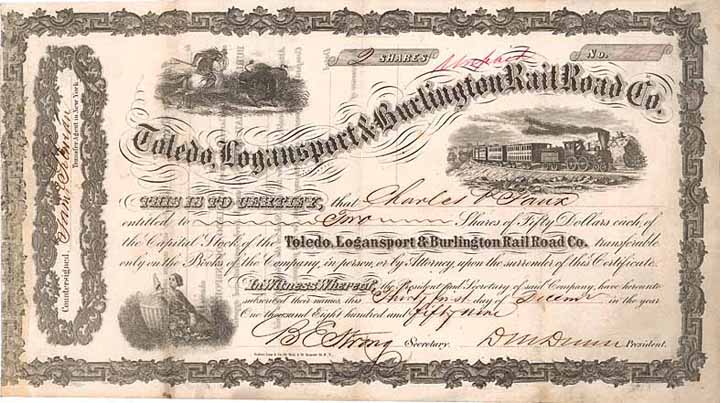 2 SHARES
No.
Toledo, Logansport & Burlington Rail Road Co.
THIS IS TO CERTIFY, that Charles
entitled to Two Shares of Fifty Dollars each, of
the Capital Stock of the Toledo, Logansport & Burlington Rail Road Co. transferable
only on the Books of the Company, in person, or by Attorney, upon the surrender of this Certificate.
In Witness Whereof, the President and Secretary of said Company, have hereunto
subscribed their names, this Thirty first day of December in the year
One thousand Eight hundred and fifty nine
B E Strong Secretary. President.
Countersigned,
Transfer Agent in New York.